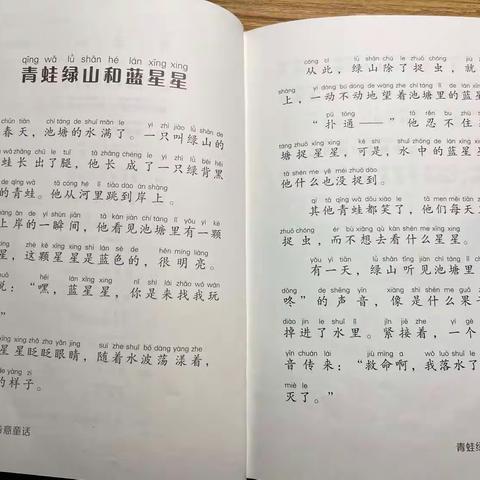 qīng wā lǜ shān hé lán xīng xing
青蛙绿山和蓝星星
chūn tiān chí táng de shuǐ mǎn le yì zhī jiào lǜ shān de
春天，池塘的水满了。一只叫绿山的
wā zhǎng chū le tuǐ tā zhǎng chéng le yì zhī lǜ bèi hēi
蛙长出了腿，他长成了一只绿背黑
de qīng wā tā cóng hé lǐ tiào dào àn shàng
的青蛙。他从河里跳到岸上。
àn de yí shùn jiān tā kàn jiàn chí táng lǐ yǒu yì kē
上岸的一瞬间，他看见池塘里有一颗
zhè kē xīng xing shì lán sè de hěn míng liàng
星，这颗星星是蓝色的，很明亮。
hēi lán xīng xing nǐ shì lái zhǎo wǒ wán
说：“嘿，蓝星星，你是来找我玩
”
xīng xing zhǎ zha yǎn jing suí zhe shuǐ bō dàng yàng zhe
星星眨眨眼睛，随着水波荡漾着，
de yàng zi
的样子。
意童话
cóng cǐ lǜ shān chú le zhuō chóng jiù
从此，绿山除了捉虫，就
shàng yí dòng bú dòng de wàng zhe chí táng lǐ de lán xīng
上，一动不动地望着池塘里的蓝星
pū tōng tā rěn bu zhù
“扑通——”他忍不住
táng zhuō xīng xing kě shì shuǐ zhōng de lán xīng xing
塘捉星星，可是，水中的蓝星星
tā shén me yě méi zhuō dào
他什么也没捉到。
其他青蛙都笑了，他们每天
zhuō chóng ér bù xiǎng qù kàn shén me xīng xing
捉虫，而不想去看什么星星。
yǒu yì tiān lǜ shān tīng jiàn chí táng lǐ
有一天，绿山听见池塘里
dōng de shēng yīn xiàng shì shén me guǒ
咚”的声音，像是什么果
diào jìn le shuǐ lǐ jǐn jiē zhe yí gè
掉进了水里。紧接着，一个
yīn chuán lái jiù mìng a wǒ luò shuǐ le
音传来：“救命啊，我落水了
miè le
灭了。”
青蛙绿